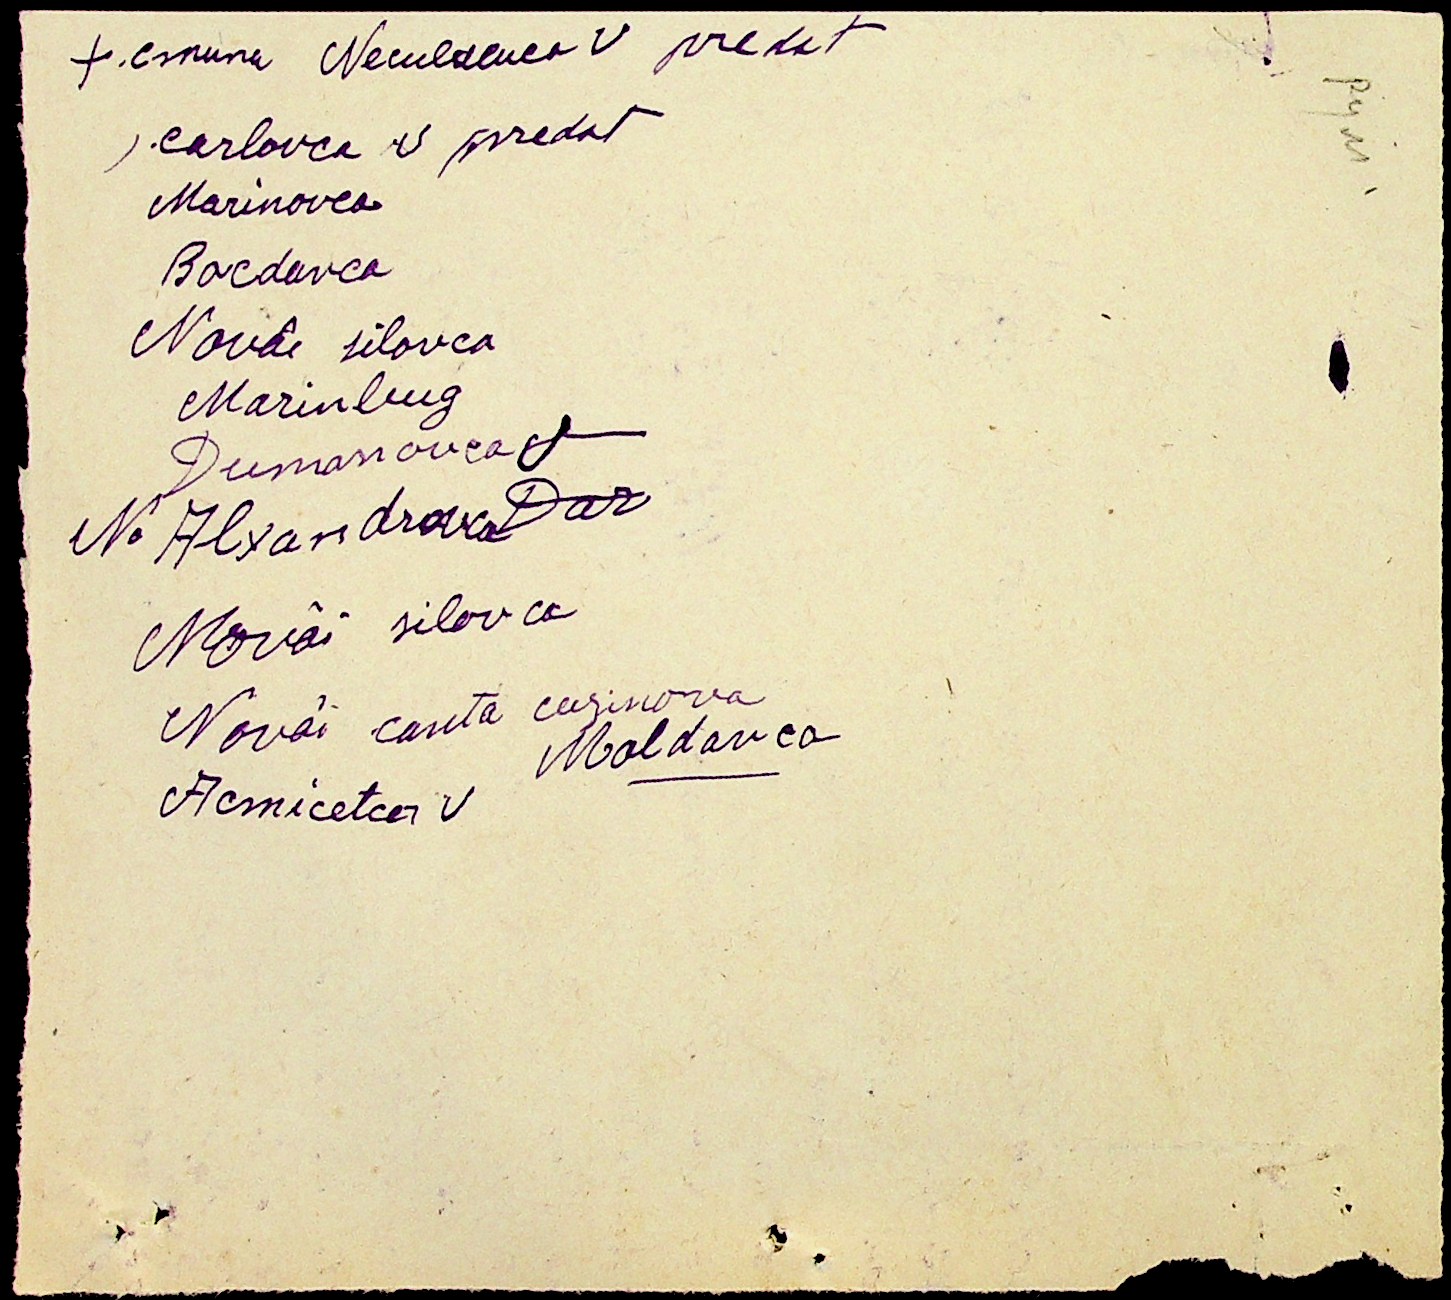 +. comuna Neculaeuca V predat
). carlovca V predat
Marinovca
Bocdavca
Novâe silovca
Marinbug
Dumanovca V
N. Alxandravca Dar
Novâi silovca
Novâi canta cuzinovca
Moldavca
Acmicetca V